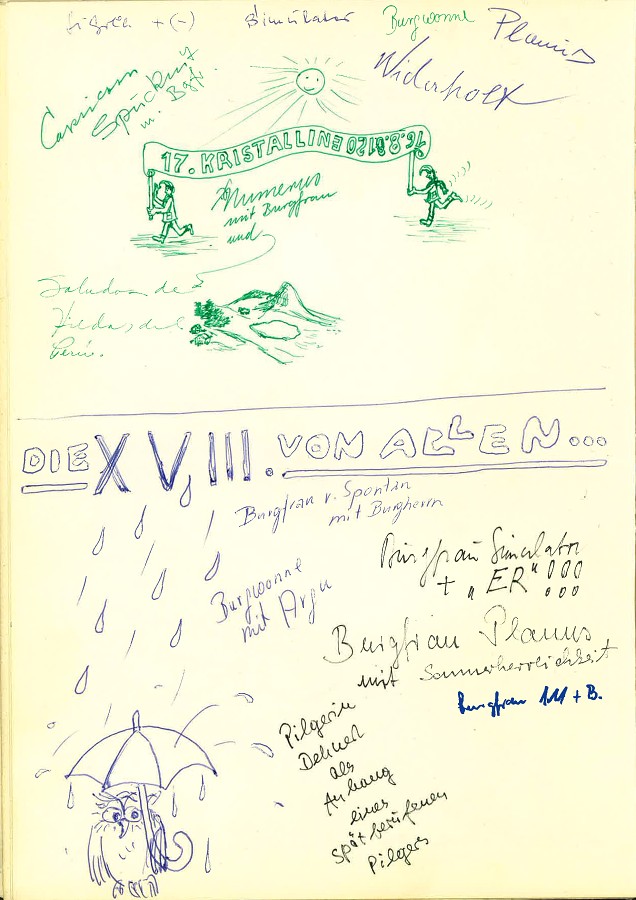 + (-)
Simulator
Burgwonne
Planus
Widerholt
17. KRISTALLINE 0210 16.8.81
Numerus
mit Burgfrau
und
Saludos de
DIE XVIII. VON ALLEN...
Burgfrau v. Spontan
mit Burgherrn
Burgfrau Simulator
+ „ER" !!!
Burgwonne
mit Argu
Burgfrau Planus
mit Sommerherrlichkeit
Burgfrau + B.
Pilgerin
Dehnet
als
Anhang
eines
spätberufenen
Pilgers